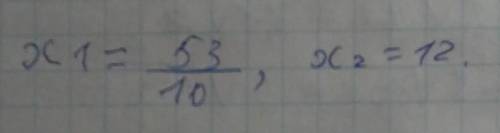 x1 = 53/10, x₂ = 12.